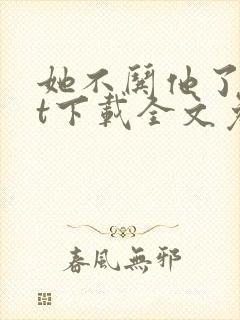 她不鬨他了
t下載全文
春風無邪